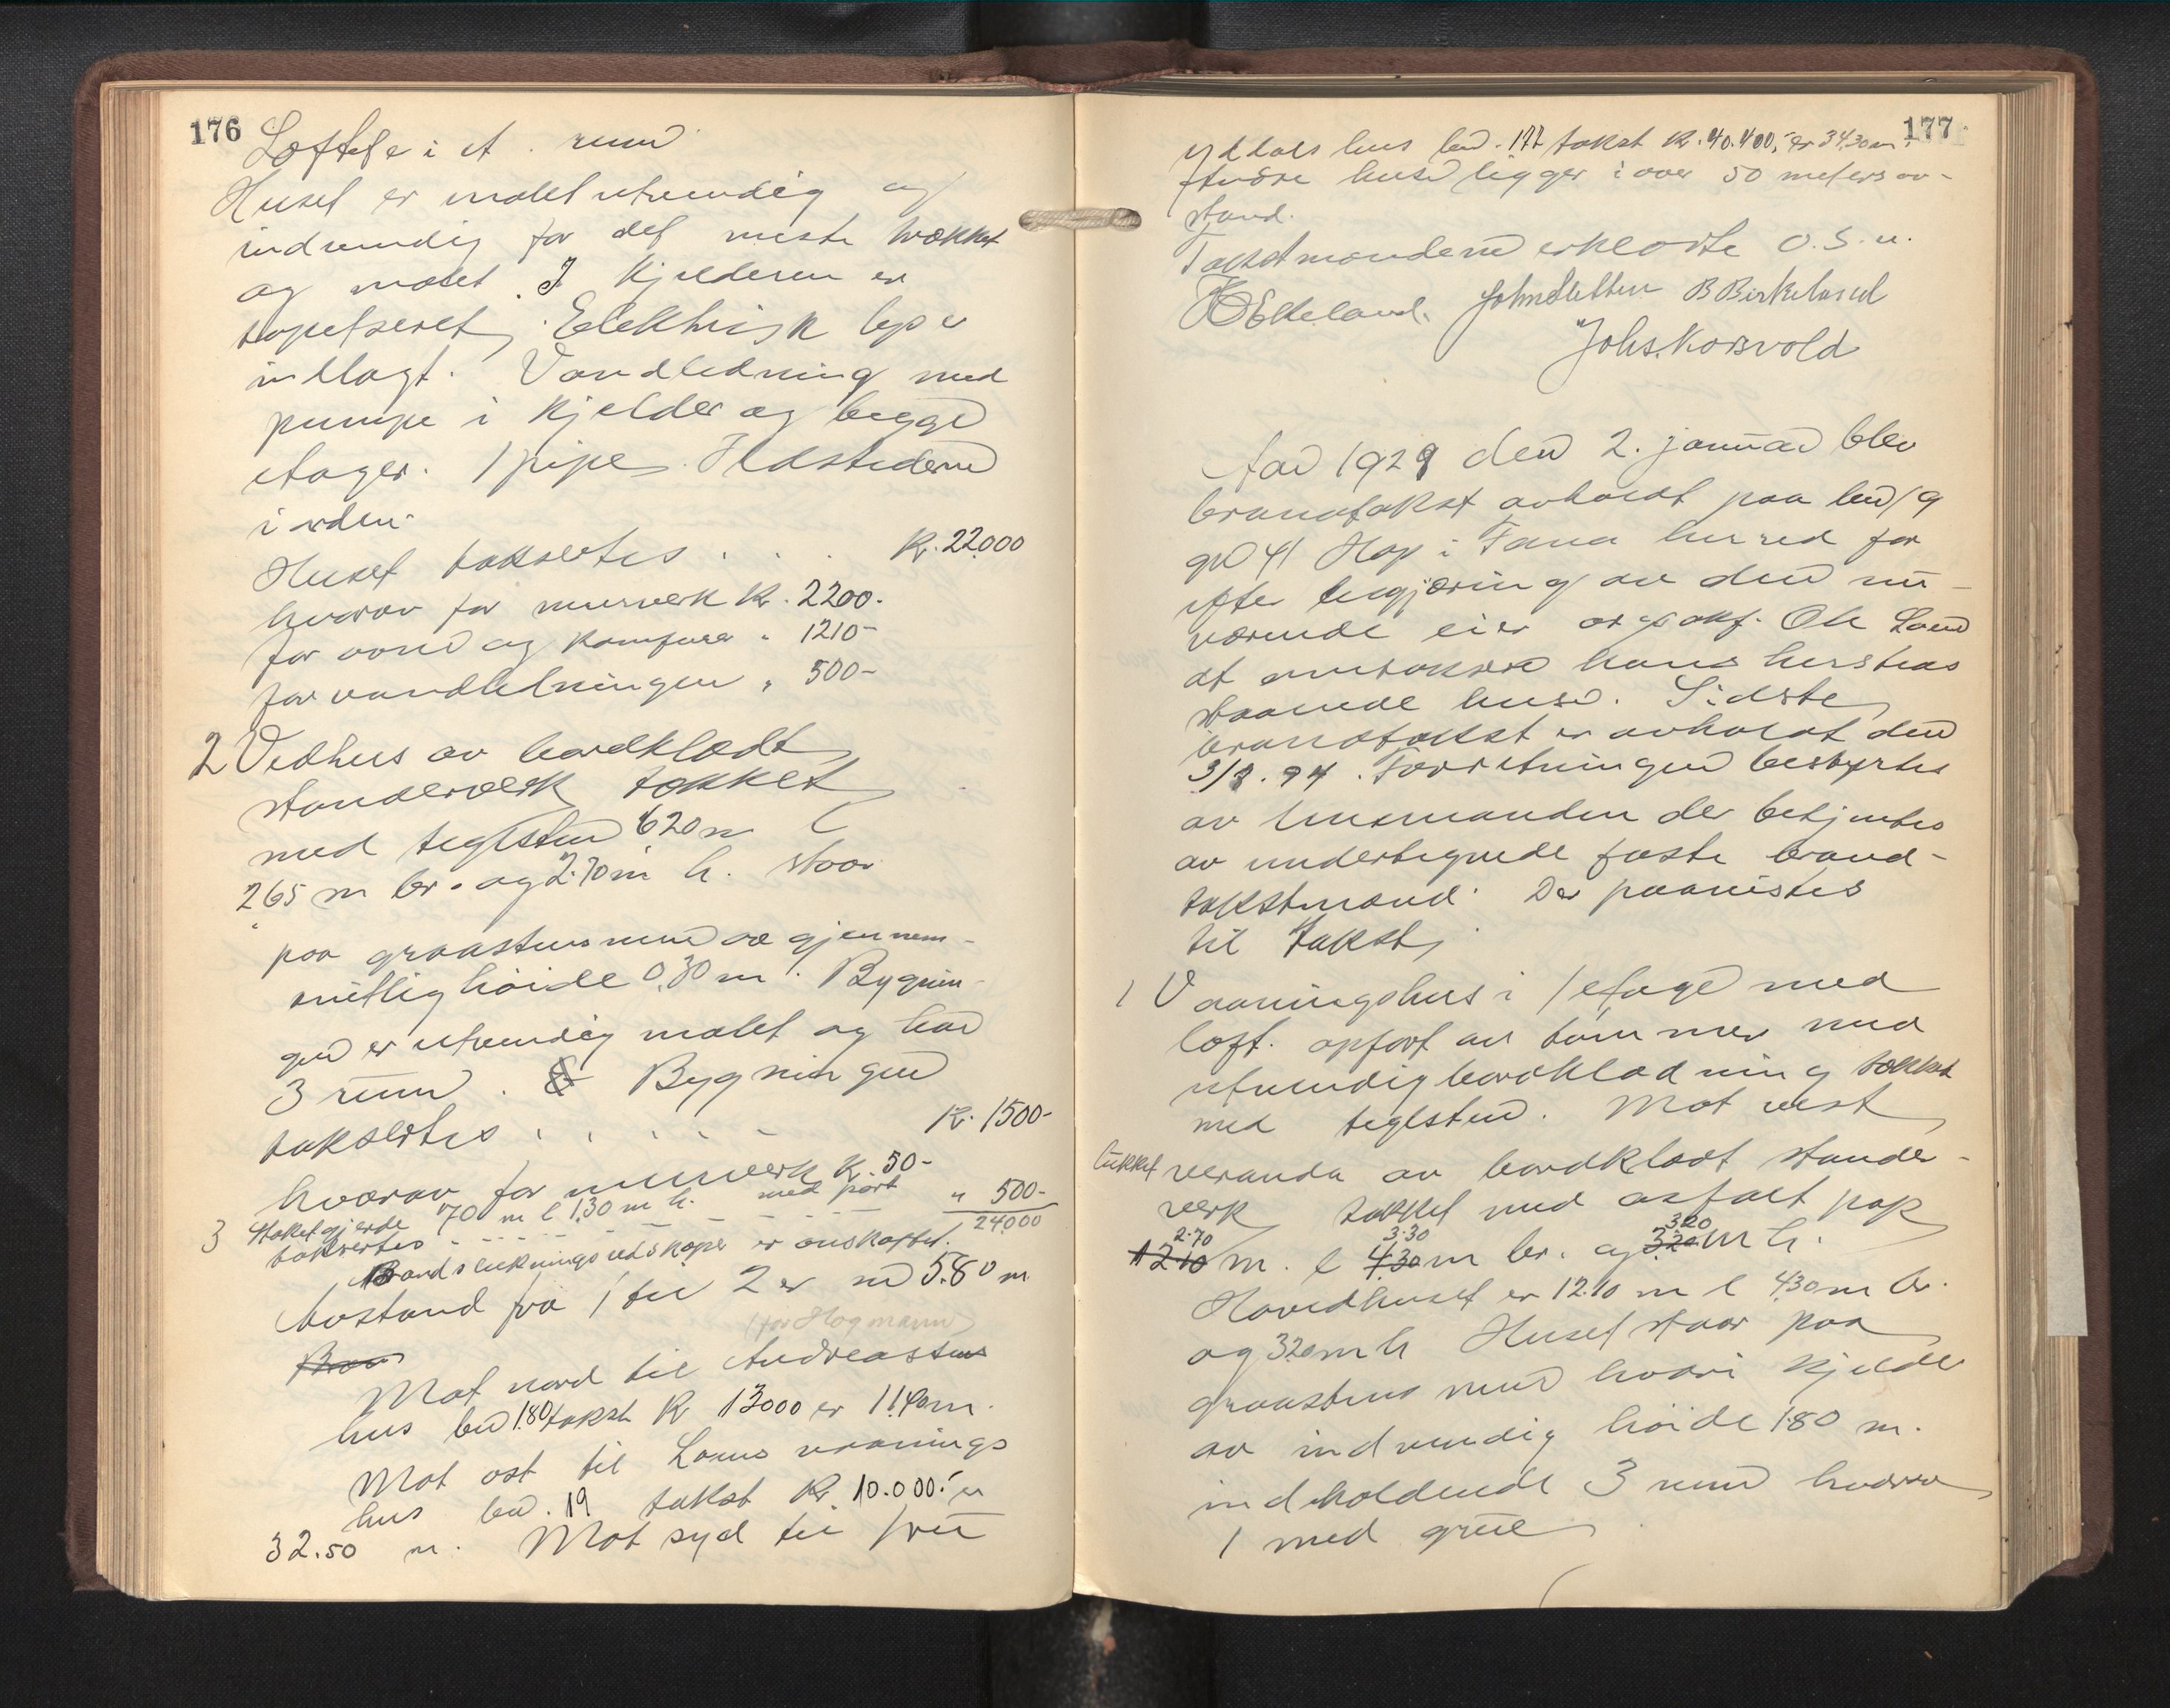 176
Loftet i et rum
Huset er malet utvendig og
indvendig for det meste trækket
og malet. I kjelderen er
tapetseret. Elektrisk lys er
indlagt. Vandledning med
pumpe i kjelder og begge
etager. 1 pipe. Ildstederne
i orden.
Huset takseres . . . Kr. 22000
hvorav for murverk Kr. 2200.
for ovne og komfurer " 1210-
for vandledningen " 500-
2 Vedhus av bordklædt
standerverk takket
med teglsten 620 m l
265 m br. og 2.70 m h. staar
paa graastensmur av gjennem-
snitlig høide 0.30 m. Bygnin-
gen er utvendig malet og har
3 rum. Bygningen
takseres . . . . . Kr. 1500-
hvorav for murverk K. 50-
3 Staketgjerde 70 m l 1.30 m h. med port
takseres - - - - - - - - " 500-
24000
Brandslukningsredskaper er anskaffet.
Avstand fra 1 til 2 er 5.80 m
(for Hogmann)
Bran
Mot nord til Andreassens
hus bno 180 takst K 13000 er 11.40 m.
Mot øst til Lams vaanings
hus bno. 19 takst Kr. 10.000.- er
32.50 m. Mot syd til fru
177
Yddals hus bno. 177 takst Kr. 40.400,- er 34.30 m.
Andre huse ligger i over 50 meters av-
stand.
Takstmændene erklærte O.S.V.
Ekeland. John Sletten B Birkeland
Johs. Korsvold
Aar 1929 den 2. januar blev
brandtakst avholdt paa bno 19
gno 41 Hop i Fana herred for
efter begjæring av den nu-
værende eier Ole Lam
at omtaksere hans hersteds
staaende huse. Sidste
brandtakst er avholdt den
3/8. 94. Forretningen bestyrtes
av lensmanden der betjentes
av undertegnede faste brand-
takstmænd. Der paavistes
til takst;
1 Vaaningshus i 1 etage med
loft. opført av tømmer med
utvendig bordklædning tækket
med teglsten. Mot vest
lukket veranda av bordklædt stander-
verk takket med asfalt pap
2.70 3.30 3.20
12.10 m. l 4.30 m br. og 3.20 m h.
Hovedhuset er 12.10 m l 4.30 m br.
og 3.20 m h Huset staar paa
graastens mur hvori kjelder
av indvendig høide 1.80 m.
indholdende 3 rum hvorav
1 med grue